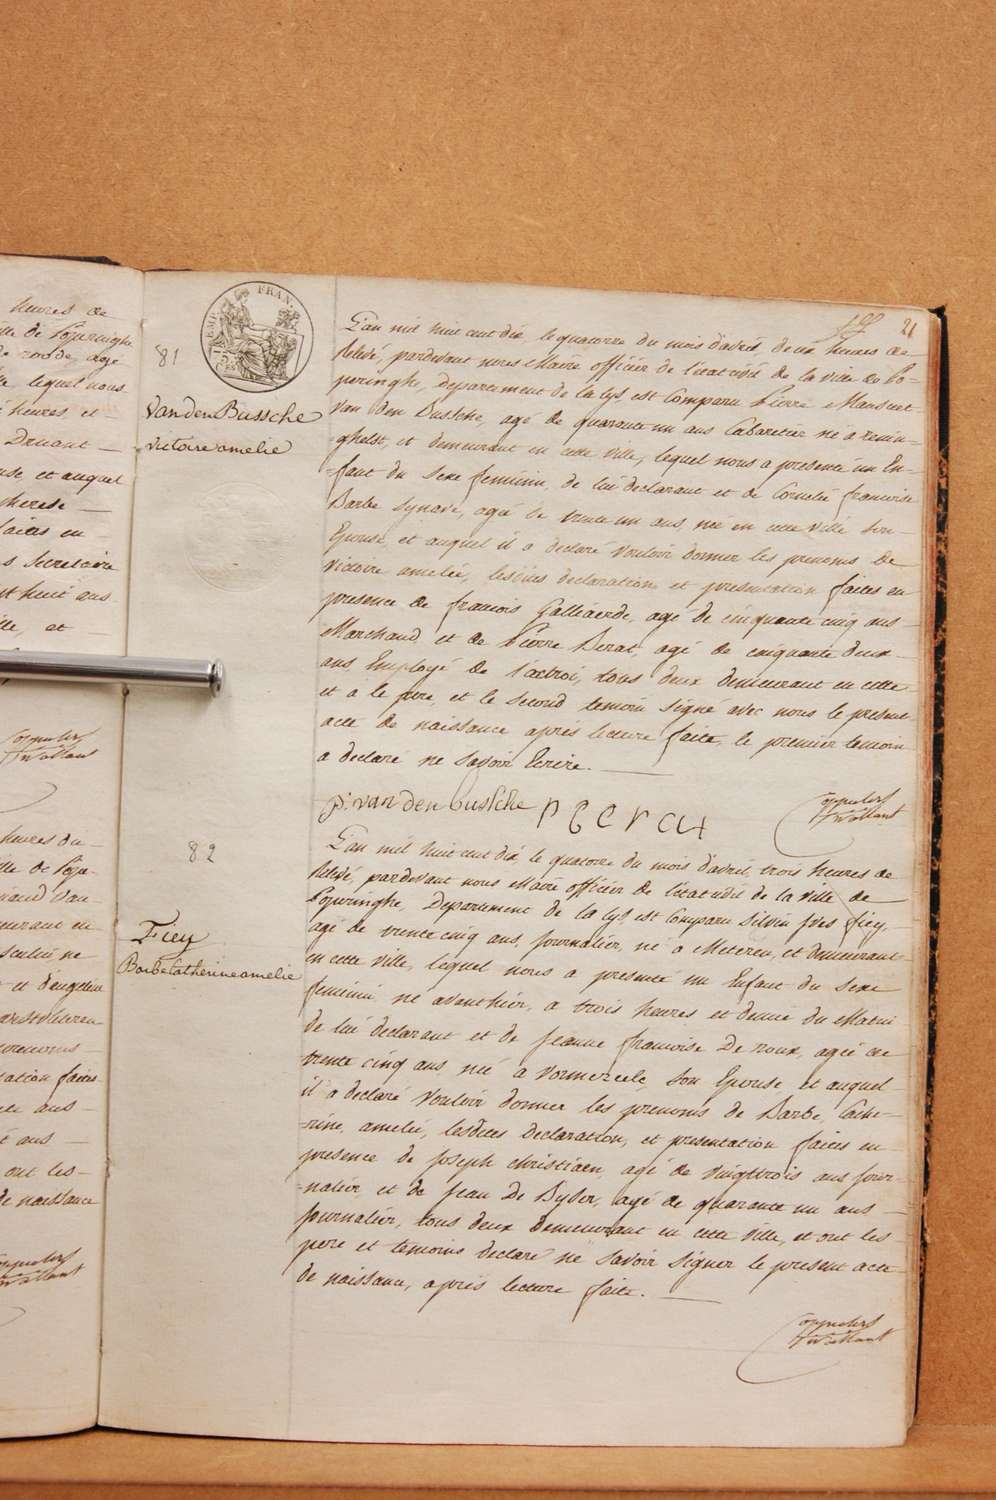 heures de
ville de Poperinghe
de ronde, agé
lequel nous
heures et
Druant
use, et auquel
therese
faites en
s Secretaire
huit ans
ville, et
heures du
ville de Pope-
meurant en
sculin ne
et d'Angeline
prenoms
tation faites
ans
ans
ont les
de naissance
EMPIRE FRAN.
21
81
Van den Bussche
Victoire amelie
L'an mil huit cent dix, le quatorze du mois d'avril, deux heures de
relevé, pardevant nous Maire officier de l'etat civil de la ville de Po-
peringhe, Departement de la Lys, est Comparu Pierre Mansuet
Van den Bussche, agé de quarante un ans Cabaretier né a renin-
ghelst, et demeurant en cette ville, lequel nous a presenté un En-
-fant du sexe feminin, de lui declarant et de Cornelie francoise
Barbe Synave, agée de trente un ans, née en cette ville son
Epouse, et auquel il a declaré vouloir donner les prenoms de
Victoire amelie, lesdites declaration et presentation faites en
presence de francois Galliaerde, agé de cinquante cinq ans
Marchand et de Pierre Berac, agé de cinquante deux
ans Employé de l'octroi, tous deux demeurant en cette
et a le pere, et le second temoin signé avec nous le present
acte de naissance après lecture faite, le premier temoin
a declaré ne savoir Ecrire.
p: van den bussche
82
Fiey
Barbe Catherine amelie
L'an mil huit cent dix le quatorze du mois d'avril, trois heures de
relevé, pardevant nous Maire officier de l'etat civil de la ville de
Poperinghe, Departement de la Lys, est Comparu Silvin Ives fiey,
agé de trente cinq ans, journalier, né a Meteren, et demeurant
en cette ville, lequel nous a presenté un Enfant du sexe
feminin, né avant hier, a trois heures et demie du Matin
de lui declarant et de Jeanne francoise De roux, agée de
trente cinq ans, née a Vormezeele, son Epouse et auquel
il a declaré vouloir donner les prenoms de Barbe, Cathe-
-rine, amelie, lesdites declaration, et presentation faites en
presence de Joseph Christiaen, agé de vingt trois ans jour-
-nalier, et de Jean De Byser, agé de quarante un ans
journalier, tous deux demeurant en cette ville, et ont les
pere et temoins declaré ne savoir signer le present acte
de naissance, après lecture faite.